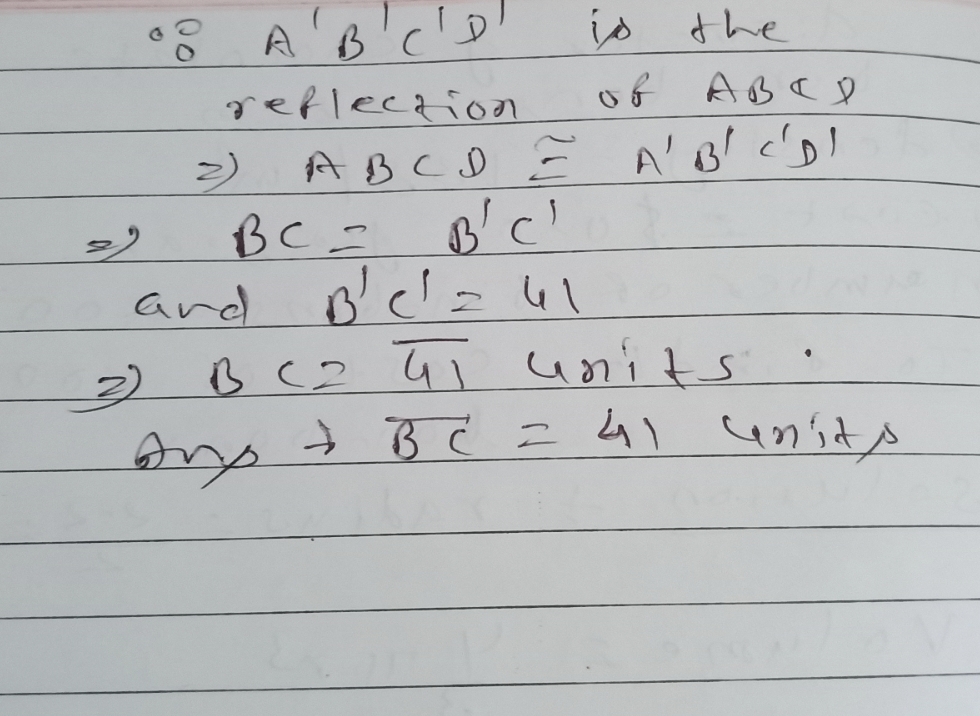 ∵ A'B'C'D' is the
reflection of ABCD
⇒ ABCD ≅ A'B'C'D'
⇒ BC = B'C'
and B'C' = 41
⇒ BC = 4̅1̅ units.
Ans → B̅C̅ = 41 units